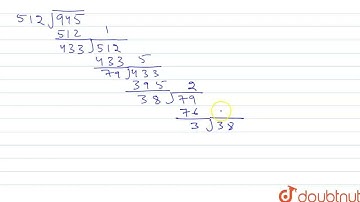 512 √945
512 1
433 √512
433 5
79 √433
395 2
38 √79
76
3 √38
doubtnut